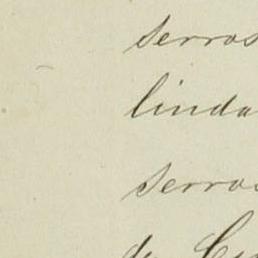 serros
linda
serros
de